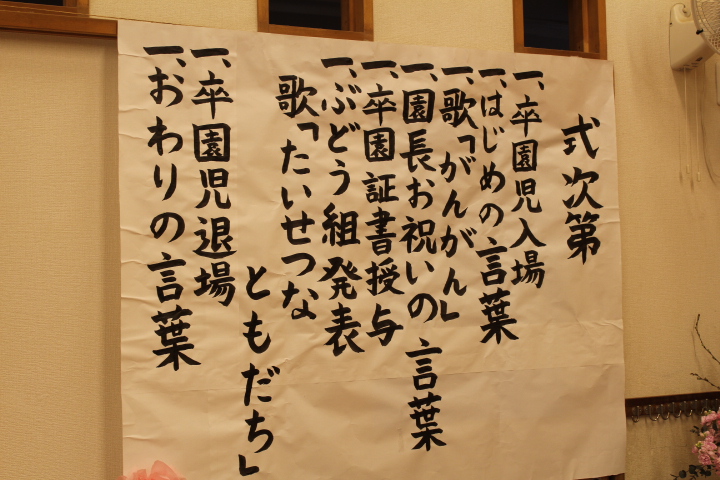 式次第
一、卒園児入場
一、はじめの言葉
一、歌「がんがん」
一、園長お祝いの言葉
一、卒園証書授与
一、ぶどう組発表
歌「たいせつな
ともだち」
一、卒園児退場
一、おわりの言葉